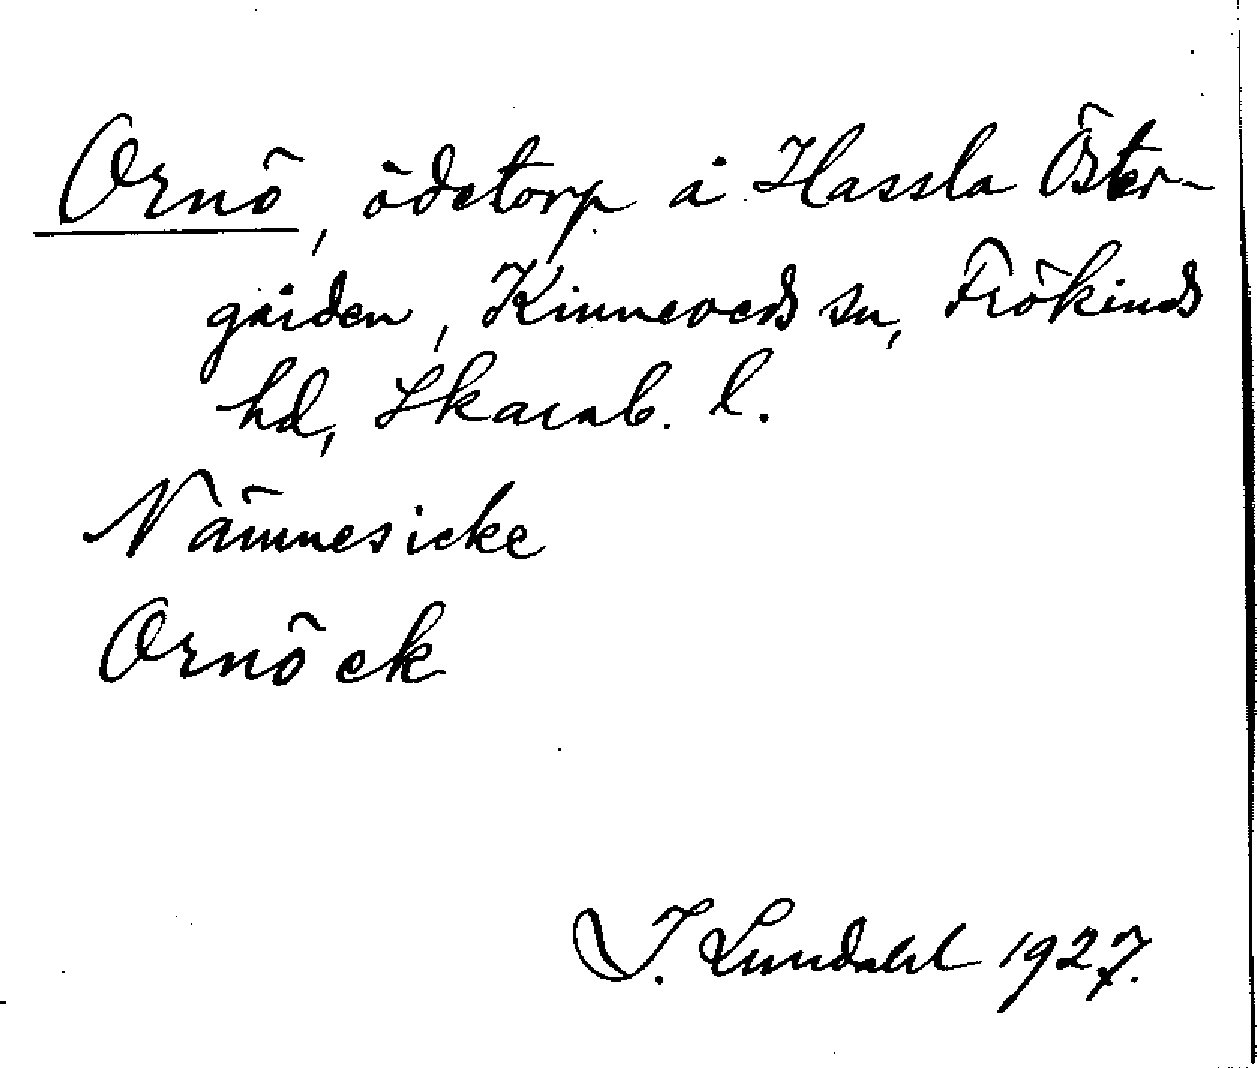 Ornö, ödetorp å Hassla Öster-
gården, Kinneveds sn, Frökinds
hd, Skarab. l.
Nämnes icke
Ornöck
I. Lundahl 1927.